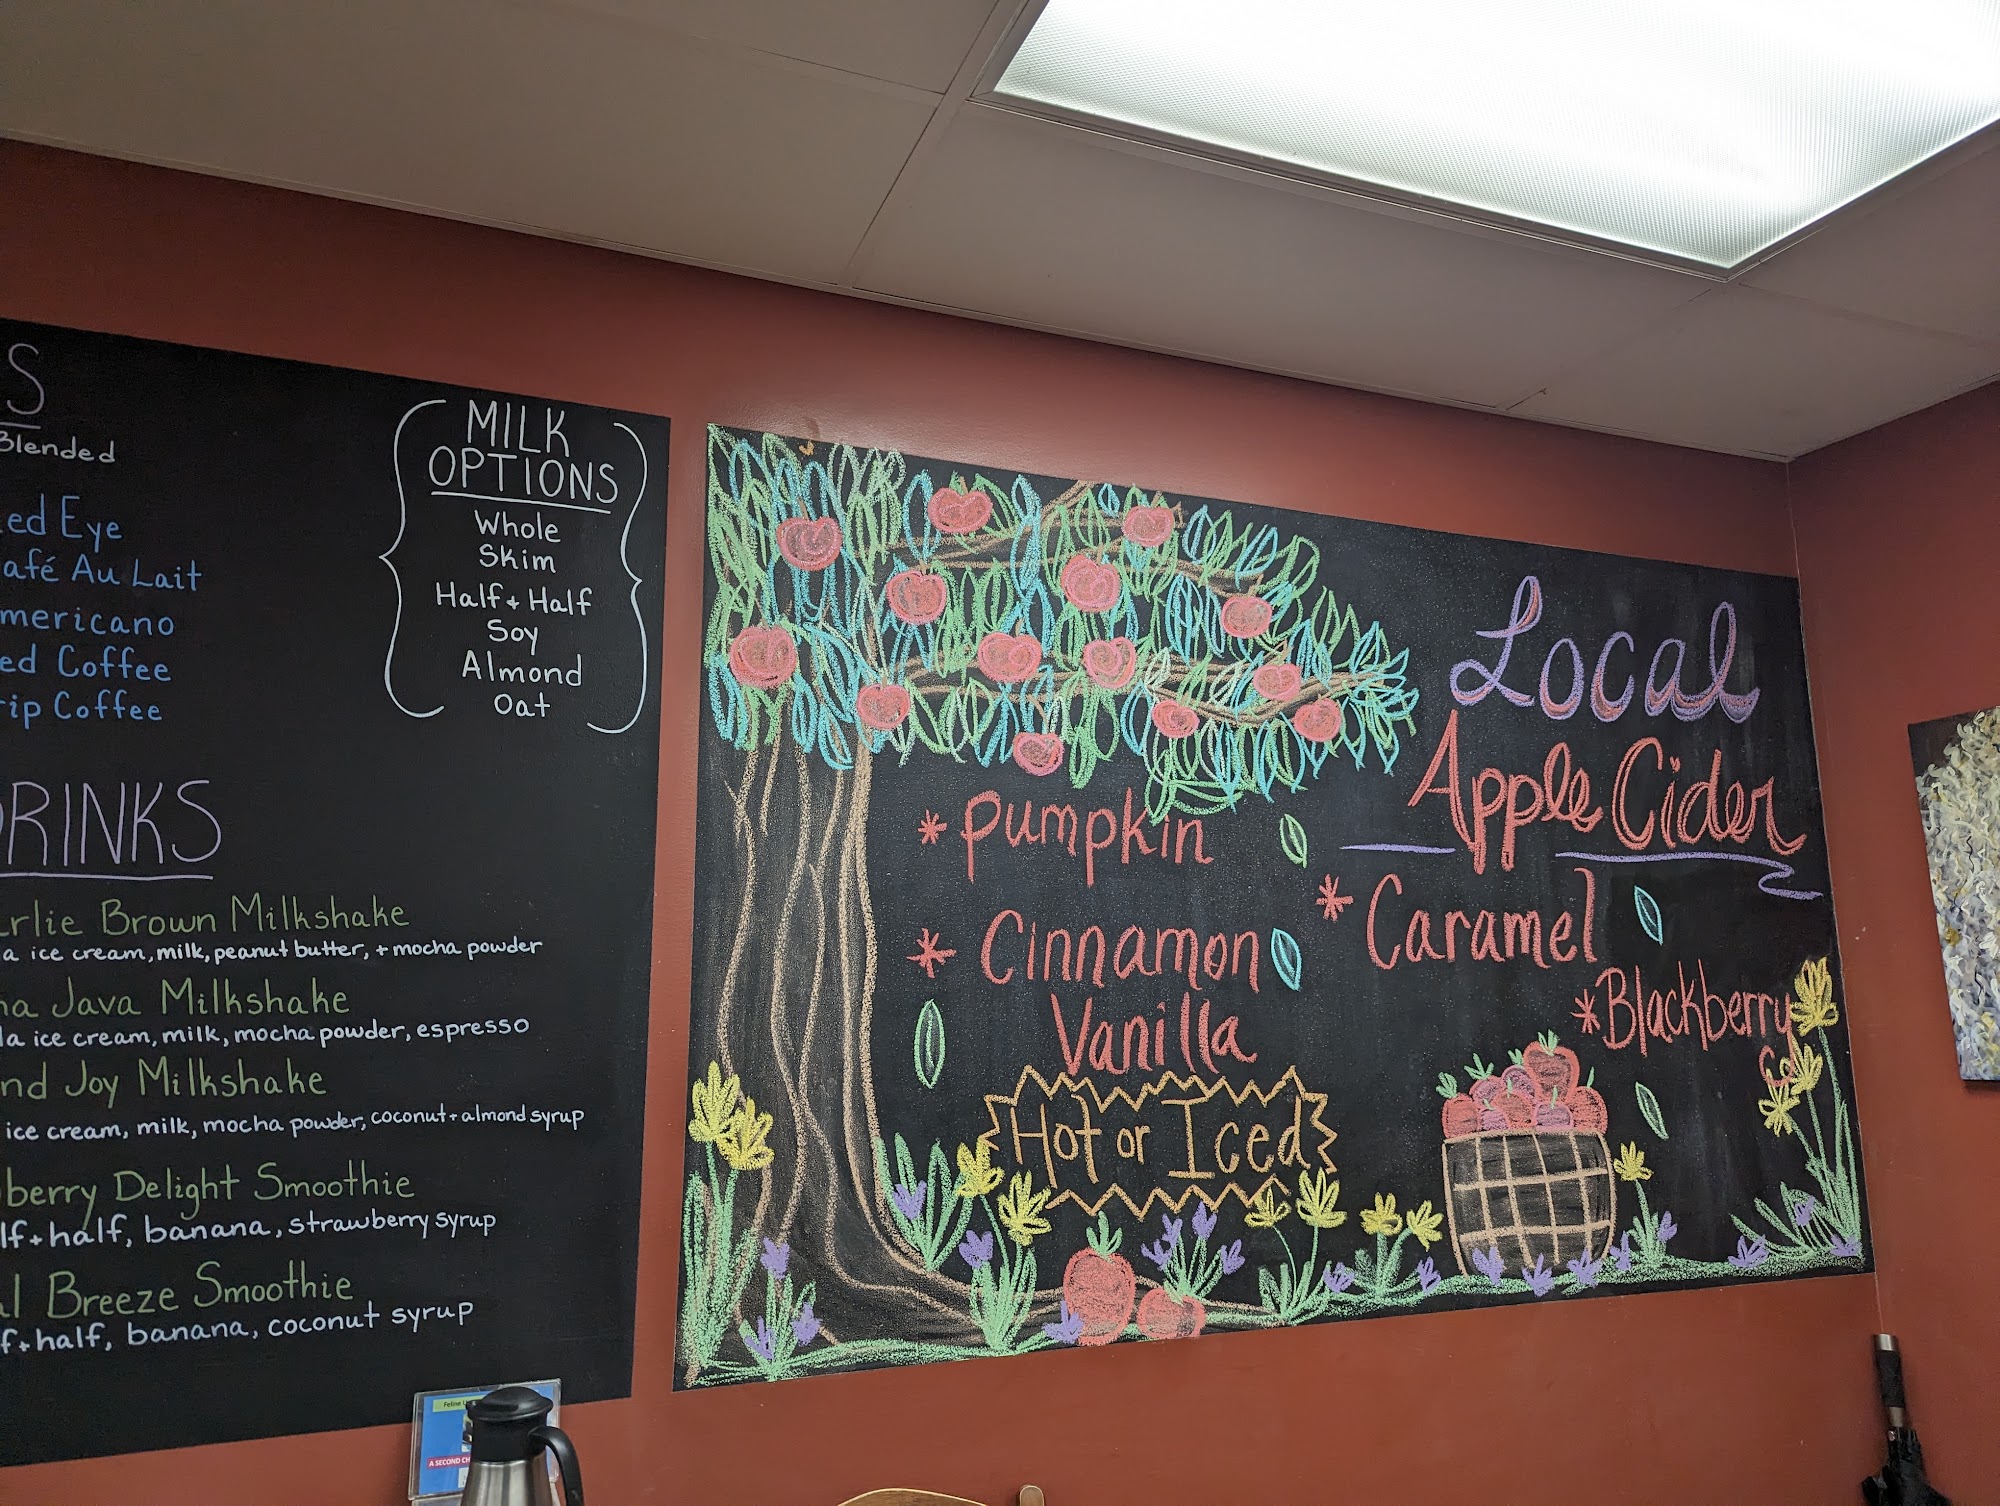 S
Blended
ed Eye
afé Au Lait
mericano
ed Coffee
rip Coffee
MILK
OPTIONS
Whole
Skim
Half + Half
Soy
Almond
Oat
DRINKS
arlie Brown Milkshake
la ice cream, milk, peanut butter, + mocha powder
ha Java Milkshake
la ice cream, milk, mocha powder, espresso
nd Joy Milkshake
ice cream, milk, mocha powder, coconut + almond syrup
berry Delight Smoothie
lf + half, banana, strawberry syrup
al Breeze Smoothie
f + half, banana, coconut syrup
Local
Apple Cider
* Pumpkin
* Caramel
* Cinnamon
Vanilla
* Blackberry
Hot or Iced
Feline
A SECOND CH